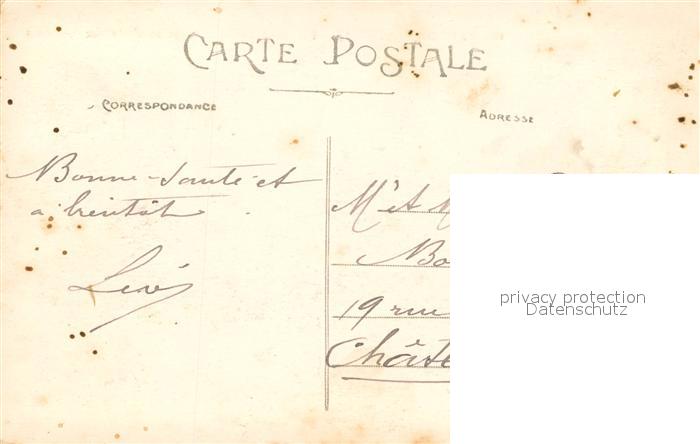 CARTE POSTALE
CORRESPONDANCE
ADRESSE
Bonne santé et
a bientôt
Mr et M
Bo
19 rue
Châte
privacy protection
Datenschutz